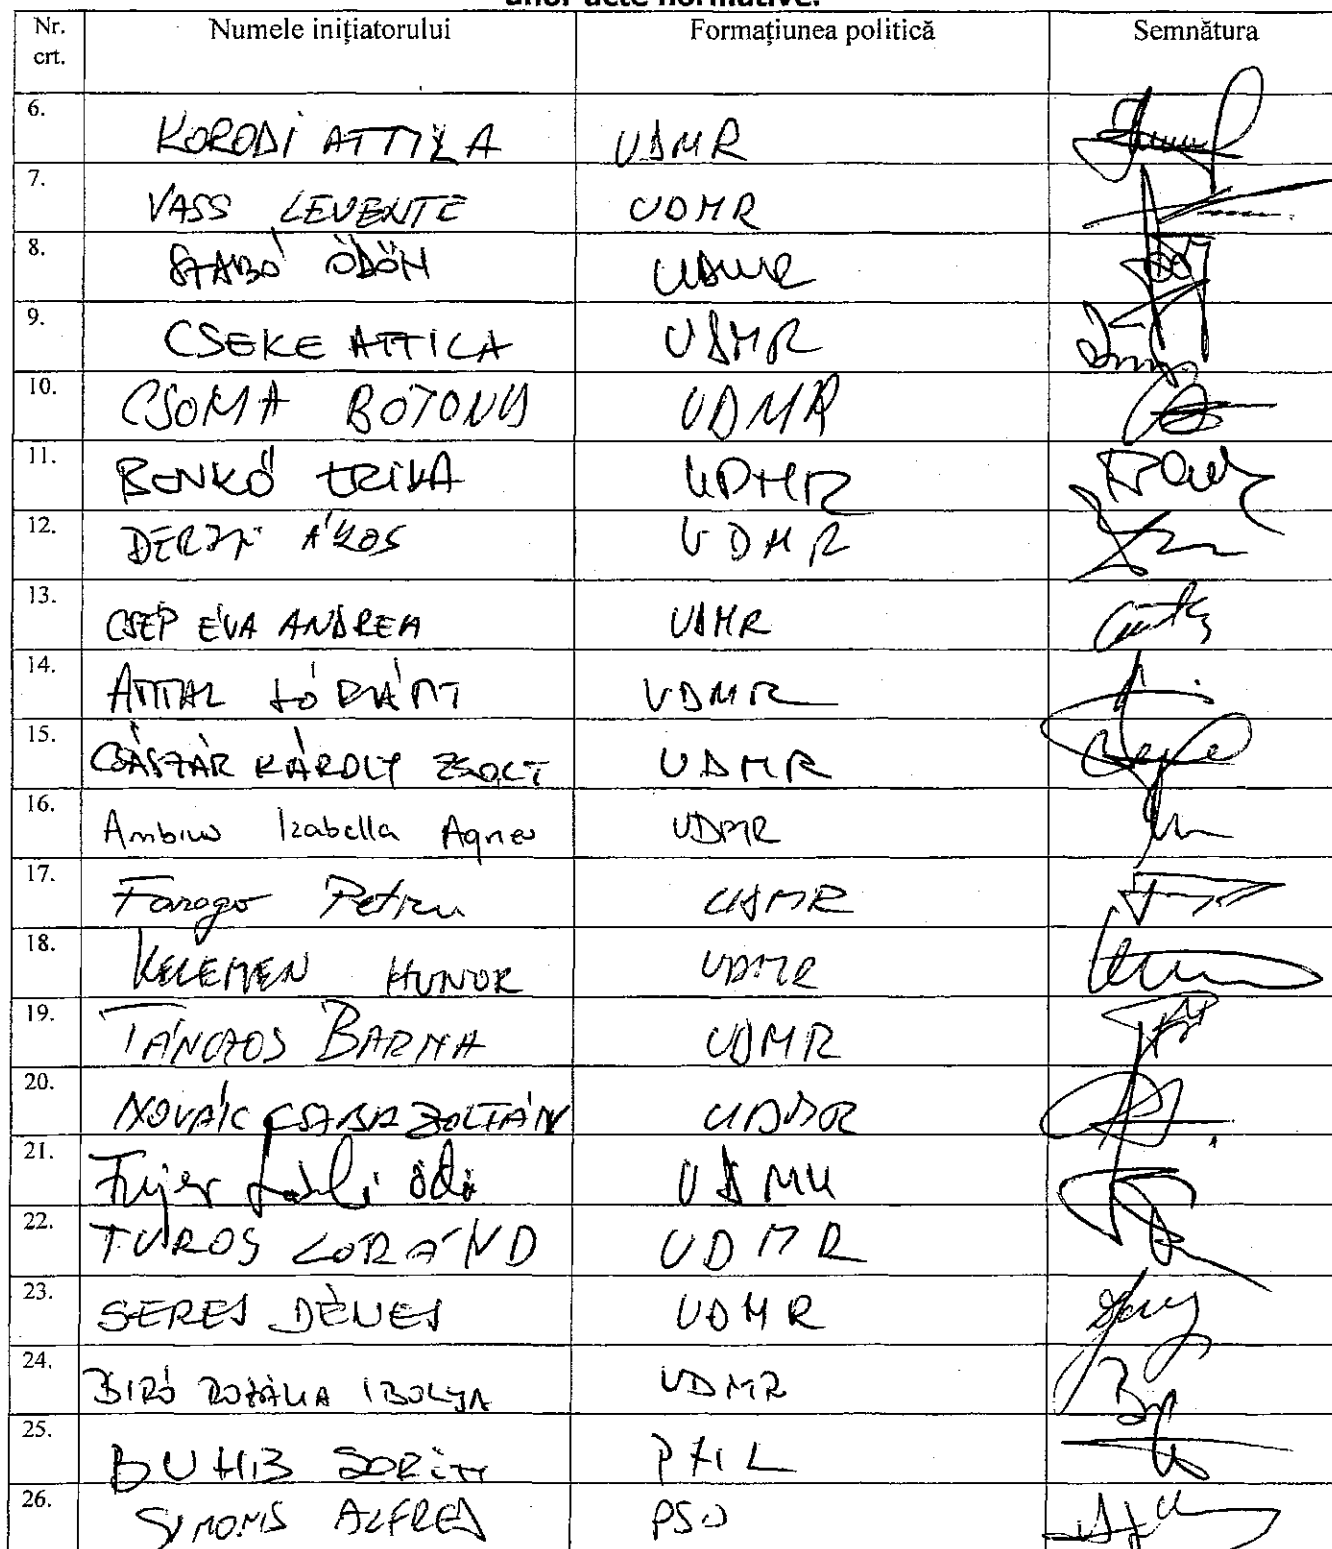 unor acte normative.
Nr. crt. Numele inițiatorului Formațiunea politică Semnătura
6. KORODI ATTILA UDMR
7. VASS LEVENTE UDMR
8. SZABÓ ÖDÖN UDMR
9. CSEKE ATTILA UDMR
10. CSOMA BOTOND UDMR
11. BENKŐ ERIKA UDMR
12. DERZSI ÁKOS UDMR
13. CSÉP ÉVA ANDREA UDMR
14. ANTAL LÓRÁNT UDMR
15. CSÁSZÁR KÁROLY ZSOLT UDMR
16. Ambrus Izabella Agnes UDMR
17. Farago Petru UDMR
18. KELEMEN HUNOR UDMR
19. TÁNCZOS BARNA UDMR
20. NOVÁK CSABA ZOLTÁN UDMR
21. Fejér László Ödön UDMR
22. TUROS LORÁND UDMR
23. SERES DÉNES UDMR
24. BIRÓ ROZÁLIA IBOLYA UDMR
25. SORIN
26. SIMONIS ALFRED PSD